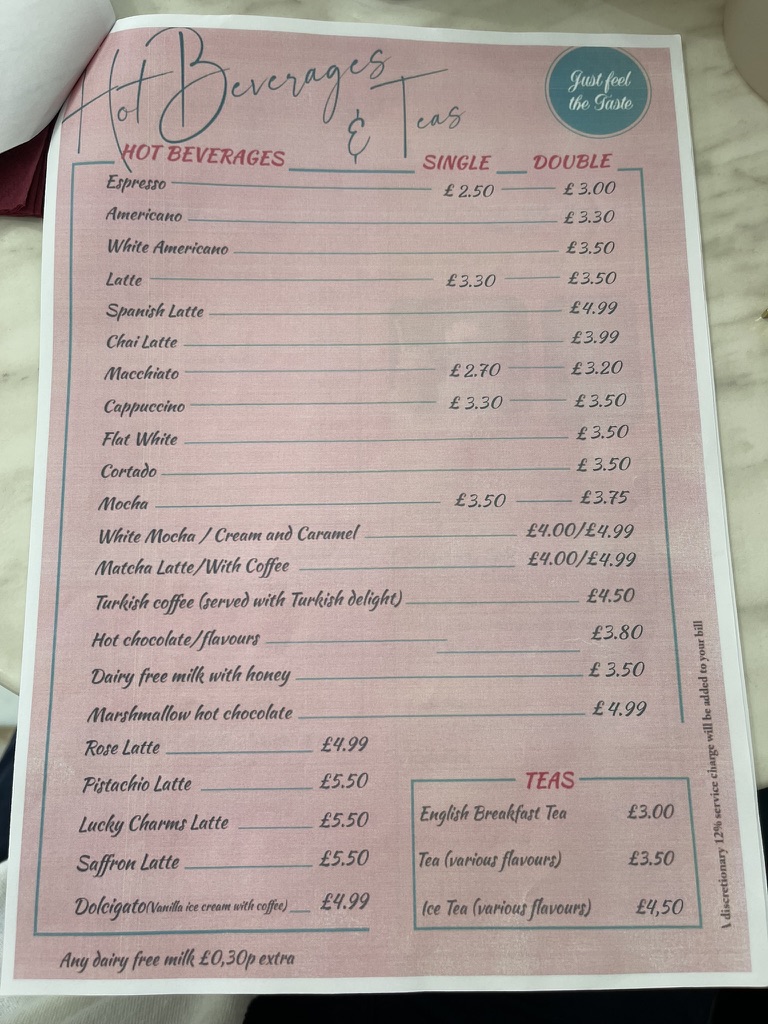 Hot Beverages
& Teas
Just feel
the Taste
HOT BEVERAGES SINGLE DOUBLE
Espresso £2.50 £3.00
Americano £3.30
White Americano £3.50
Latte £3.30 £3.50
Spanish Latte £4.99
Chai Latte £3.99
Macchiato £2.70 £3.20
Cappuccino £3.30 £3.50
Flat White £3.50
Cortado £3.50
Mocha £3.50 £3.75
White Mocha / Cream and Caramel £4.00/£4.99
Matcha Latte/With Coffee £4.00/£4.99
Turkish coffee (served with Turkish delight) £4.50
Hot chocolate/flavours £3.80
Dairy free milk with honey £3.50
Marshmallow hot chocolate £4.99
Rose Latte £4.99
Pistachio Latte £5.50
Lucky Charms Latte £5.50
Saffron Latte £5.50
Dolcigato(Vanilla ice cream with coffee) £4.99
Any dairy free milk £0,30p extra
TEAS
English Breakfast Tea £3.00
Tea (various flavours) £3.50
Ice Tea (various flavours) £4,50
A discretionary 12% service charge will be added to your bill